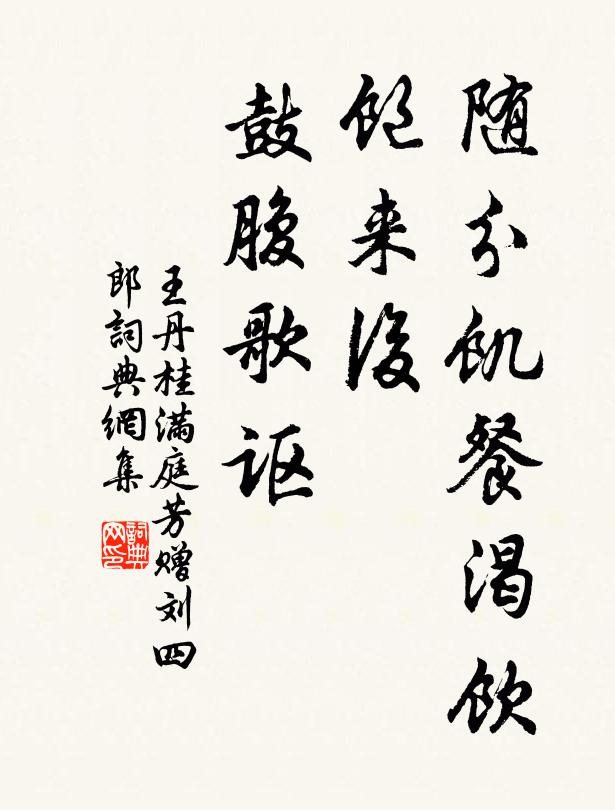 随分飢餐渴飲
飽来後
鼓腹歌讴
王丹桂满庭芳赠刘四
郎詞典網集
詞典网印